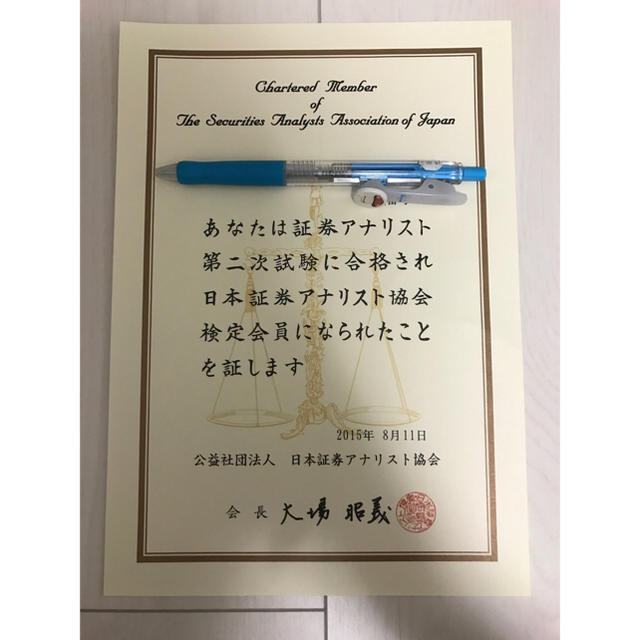 Chartered Member
of
The Securities Analysts Association of Japan
あなたは証券アナリスト
第二次試験に合格され
日本証券アナリスト協会
検定会員になられたこと
を証します
2015年 8月11日
公益社団法人 日本証券アナリスト協会
会長 大場昭義